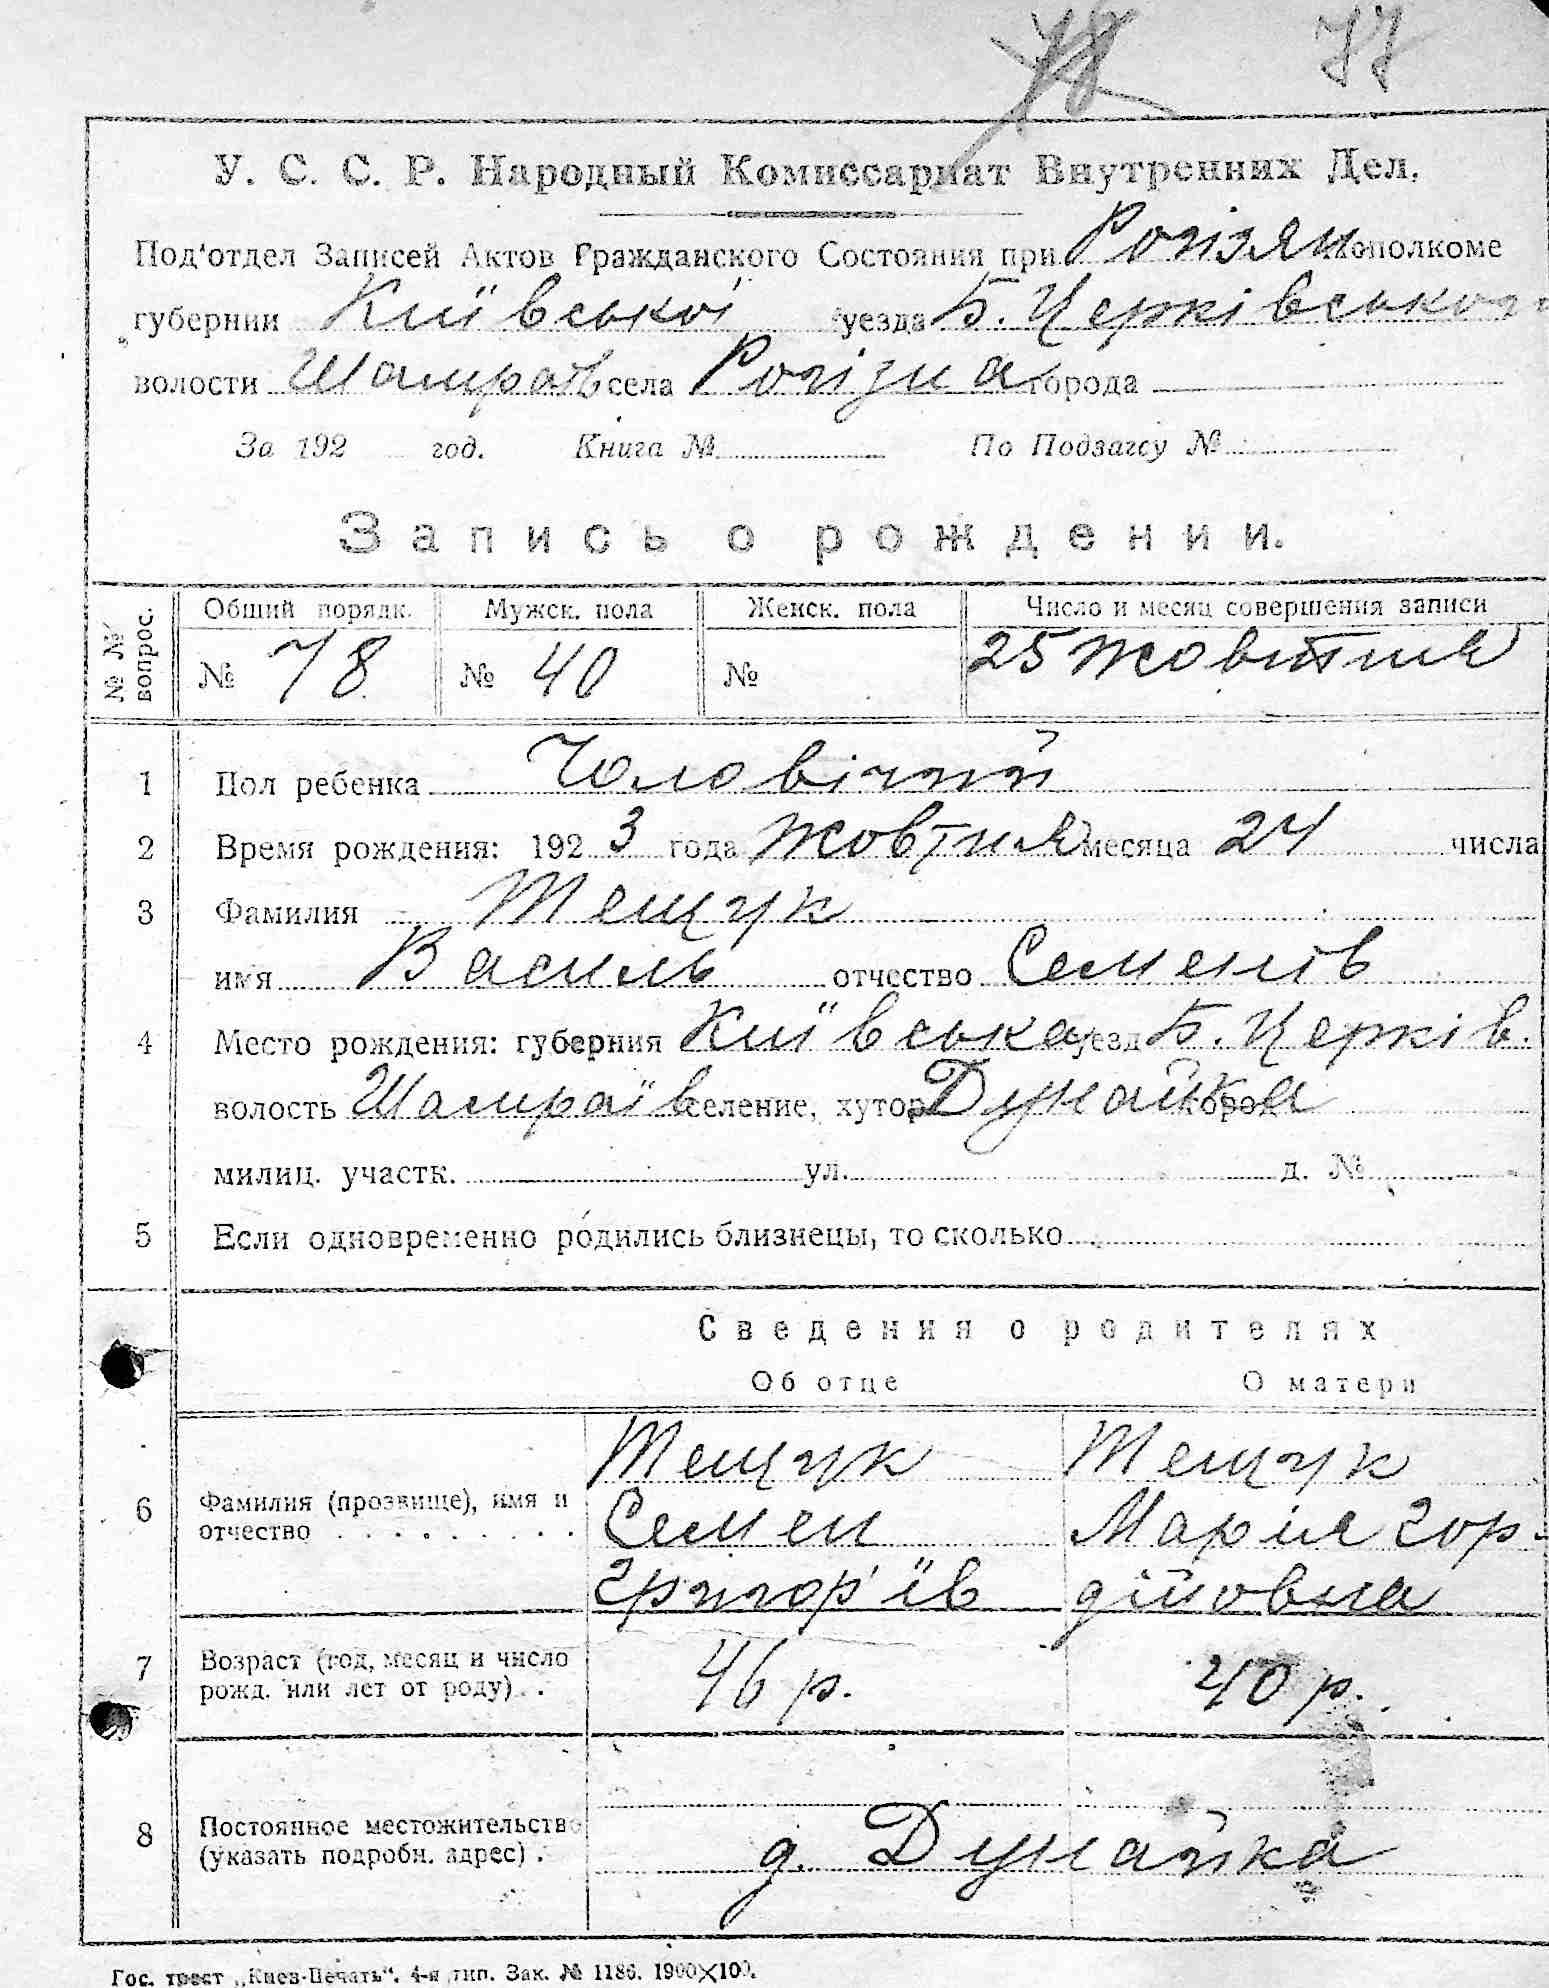 78 77
У. С. С. Р. Народный Комиссариат Внутренних Дел.
Под'отдел Записей Актов Гражданского Состояния при Рогізян исполкоме
губернии Київської уезда Б. Церківського
волости Шамраїв села Рогізна города
За 192 год. Книга № По Подзагсу №
Запись о рождении.
№ № вопрос. Общий порядк. Мужск. пола Женск. пола Число и месяц совершения записи
№ 78 № 40 № 25 жовтня
1 Пол ребенка Чоловічий
2 Время рождения: 192 3 года жовтня месяца 24 числа
3 Фамилия Тещук
имя Василь отчество Семенів
4 Место рождения: губерния Київська уезд Б. Церків.
волость Шамраїв селение, хутор Дунайка город
милиц. участк. ул. д. №
5 Если одновременно родились близнецы, то сколько
Сведения о родителях
Об отце О матери
Тещук Тещук
6 Фамилия (прозвище), имя и отчество Семен Марія Гор-
Григор'їв дійовна
7 Возраст (год, месяц и число
рожд. или лет от роду) 46 р. 40 р.
8 Постоянное местожительство
(указать подробн. адрес) д. Дунайка
Гос. трест „Киев-Печать". 4-я тип. Зак. № 1186. 1900×100.